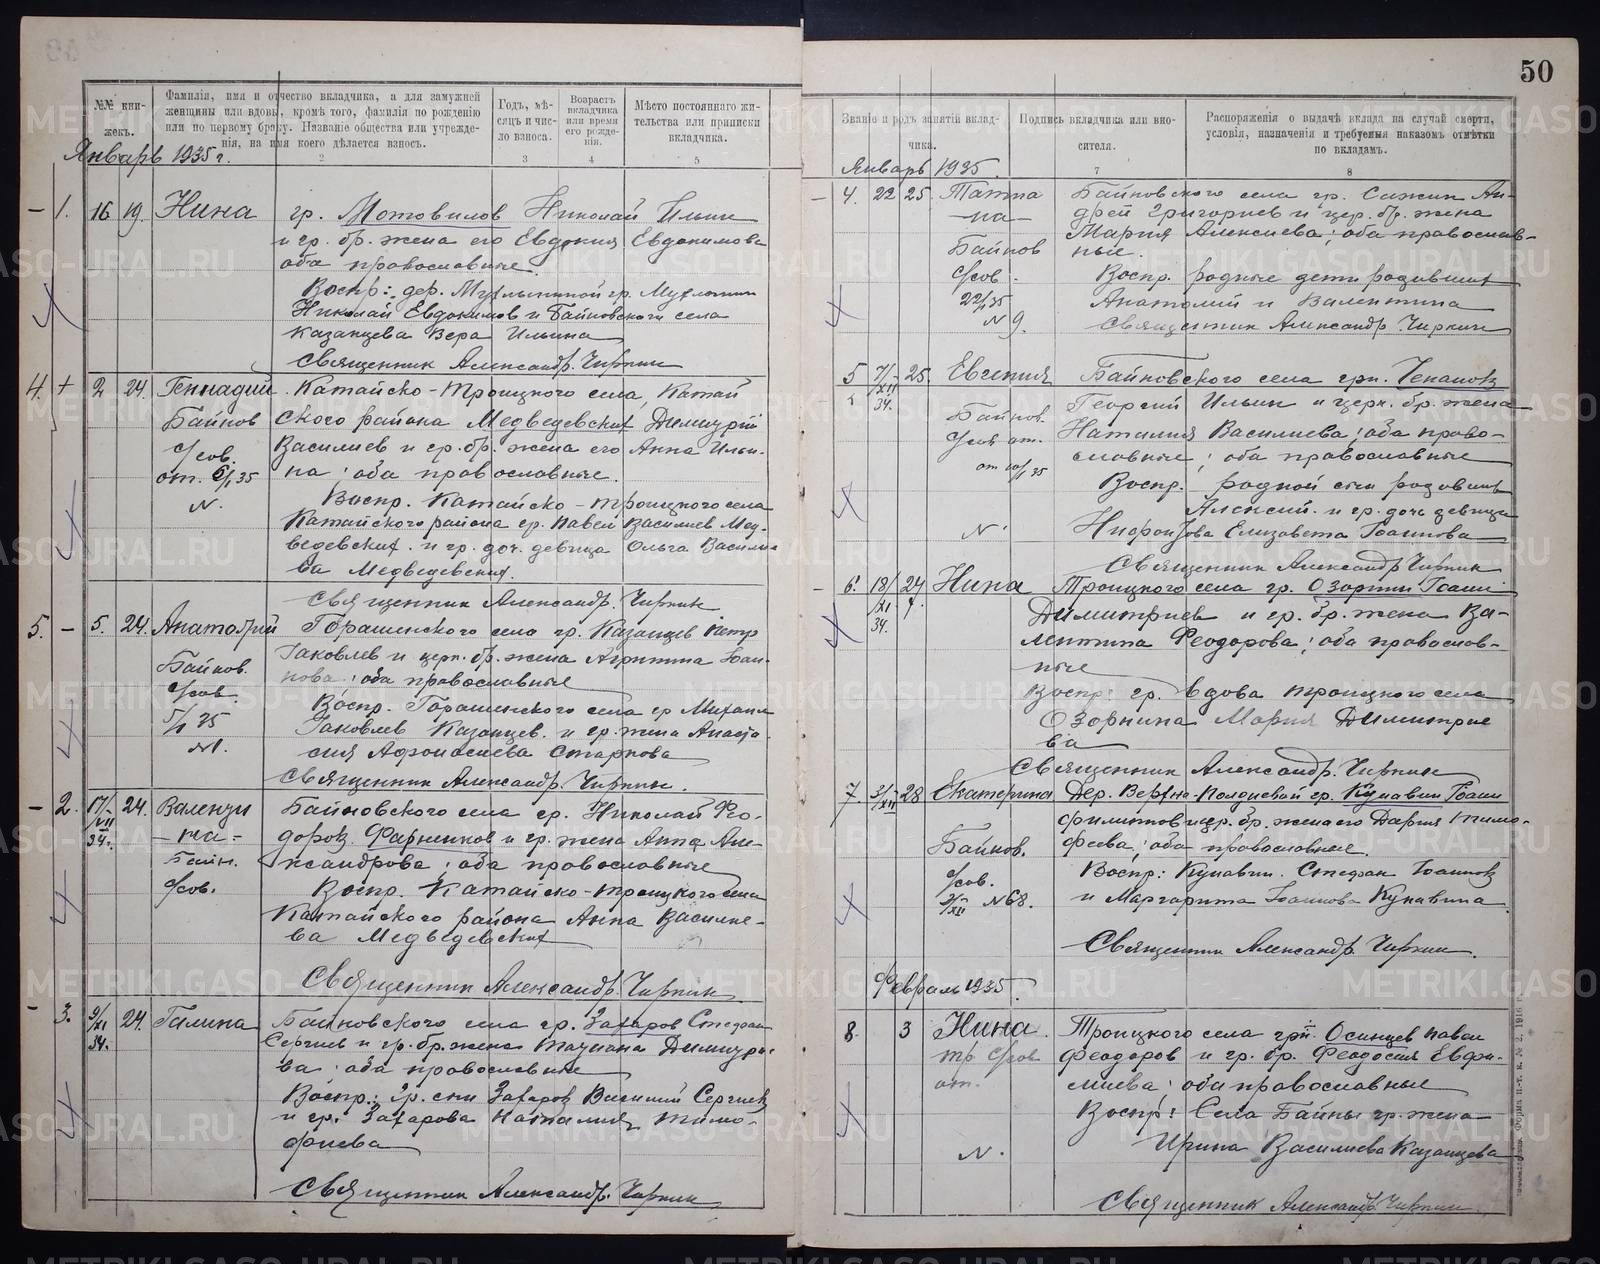 50
№№ кни-
жекъ.
Фамилія, имя и отчество вкладчика, а для замужней
женщины или вдовы, кромѣ того, фамилія по рожденію
или по первому браку. Названіе общества или учрежде-
нія, на имя коего дѣлается взносъ.
Годъ, мѣ-
сяцъ и чис-
ло взноса.
Возрастъ
вкладчика
или время
его рожде-
нія.
Мѣсто постояннаго жи-
тельства или приписки
вкладчика.
2
3
4
5
Январь 1935 г.
1. 16 19. Нина гр. Мотовилов Николай Ильин
и гр. бр. жена его Евдокия Евдокимова
оба православные.
Воспр:
Николай Евдокимов и Байновского села
Казанцева Вера Ильина
Священник Александр Чиркин
4. + 2 24. Геннадий. Катайско-Троицкого села, Катай
Байнов ского района Медведевских Димитрій
с/сов. Василиев и гр. бр. жена его Анна Ильи-
от. 5/I 35 на; оба православные.
N. Воспр. Катайско-Троицкого села
Катайского района гр. Павел Василиев Мед-
ведевских. и гр. доч. девица Ольга Василие
ва Медведевских.
Священник Александр. Чиркин
5. – 5. 24. Анатолий Казанцев Петр
Байнов. Іаковлев и церк. бр. жена Агрипина Іоан-
с/сов нова; оба православные
Воспр. гр Михаил
N1. Іаковлев Казанцев. и гр. жена Анаста
сия Афонасиева Старкова
Священник Александр. Чиркин.
– 2. 17/VII 34. 24. Валенти Байновского села гр. Николай Фео-
– на – доров Фарненков и гр. жена Анна Але-
Байн. ксандрова; оба православные
с/сов. Воспр. Катайско-троицкого села
Катайского района Анна Василие-
ва Медведевских
Священник Александр. Чиркин
– 3. 9/XI 34. 24. Галина Байновского села гр. Захаров Стефан
Сергиев и гр. бр. жена Татиана Димитри-
ва; оба православные
Воспр.: гр. сын Захаров Василий Сергиев
и гр. Захарова Наталия Тимо-
фиева
Священник Александр. Чиркин
Званіе и родъ занятій вклад-
чика.
Подпись вкладчика или вно-
сителя.
Распоряженія о выдачѣ вклада на случай смерти,
условія, назначенія и требуемыя наказомъ отмѣтки
по вкладамъ.
7
8
Январь 1935.
– 4. 22 25. Татиа Байновского села гр. Сажин Ан-
– на – дрей Григориев и цер. бр. жена
Мария Алексиева; оба православ-
Байнов ные.
с/сов. Воспр. родные дети родивших
22/I 35 Анатолий и Валентина
N 9. Священник Александр. Чиркин
5 7/XII 34. 25. Евгения Байновского села грн. Чепанов
Георгий Ильин и церк. бр. жена
Байнов. Наталия Василиева; оба право-
с/сов от. славные; оба православные
от 10/I 35 Воспр. родной сын родивших
Алексий. и гр. дочь девица
N. Елизавета Іоаннова
Священник Александр Чиркин
– 6. 18/XI 34. 27 Нина Троицкого села гр. Озорнин Іоанн
Димитриев и гр. бр. жена Ва-
лентина Феодорова; оба православ-
ные
Воспр: гр. вдова Троицкого села
Озорнина Мария Димитрие
ва
Священник Александр. Чиркин
7. 28 Екатерина Дер. Верхне-Полдневой гр. Кунавин Іоанн
Филиппов и цр. бр. жена его Дария Тимо-
Байнов. феева; оба православные.
с/сов. Воспр: Кунавин. Стефан Іоаннов
N68. и Маргарита Іоаннова Кунавина.
Священник Александр. Чиркин.
Февраль 1935.
8. 3 Нина Троицкого села грн. Осинцев Павел
тр. с/сов Феодоров и гр. бр. Феодосия Евфи-
от. миева; оба православные
Воспр: Села Байны гр. жена
N. Ирина Василиева Казанцева
Священник Александр. Чиркин
METRIKI.GASO-URAL.RU